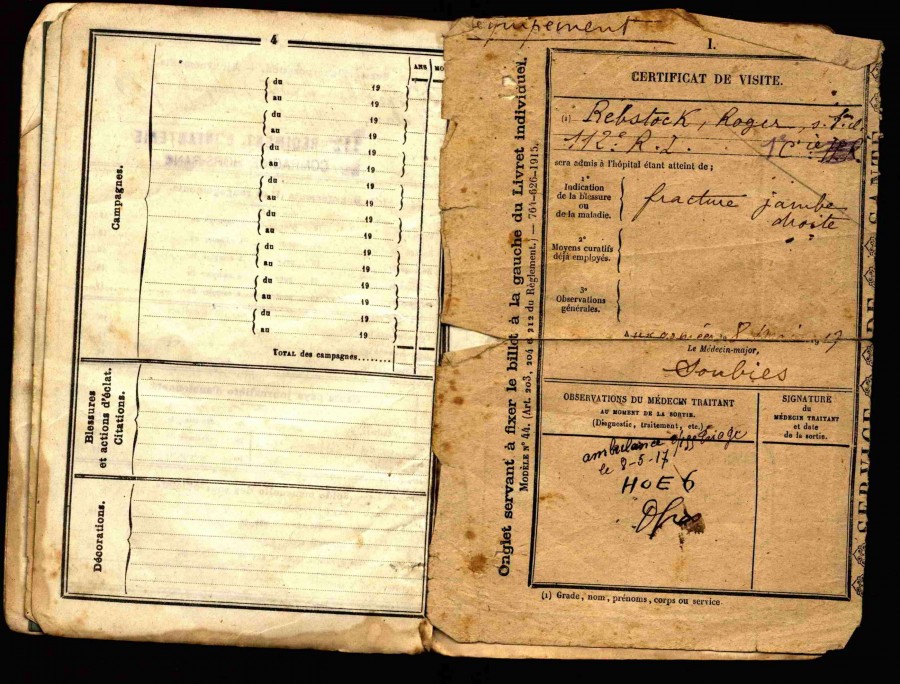 4
ANS
MO
Campagnes.
du
au 19
du 19
au 19
du 19
au 19
du 19
au 19
du 19
au 19
du 19
au 19
du 19
au 19
du 19
au 19
TOTAL des campagnes........
Blessures
et actions d'éclat.
Citations.
Décorations.
équipement
Onglet servant à fixer le billet à la gauche du Livret individuel.
MODÈLE N° 44. (Art. 203, 204 et 212 du Règlement.) — 761-626-1915.
1.
CERTIFICAT DE VISITE.
(1) Rebstock, Roger,
112e R.I.
sera admis à l'hôpital étant atteint de ;
1°
Indication
de la blessure
ou
de la maladie.
fracture jambe
droite
2°
Moyens curatifs
déjà employés.
3°
Observations
générales.
8 mai 1917
Le Médecin-major,
Soubies
OBSERVATIONS DU MÉDECIN TRAITANT
AU MOMENT DE LA SORTIE.
(Diagnostic, traitement, etc.)
SIGNATURE
du
MÉDECIN TRAITANT
et date
de la sortie.
ambulance
le 8-5-17
HOE 6
(1) Grade, nom, prénoms, corps ou service
SERVICE DE SANTÉ